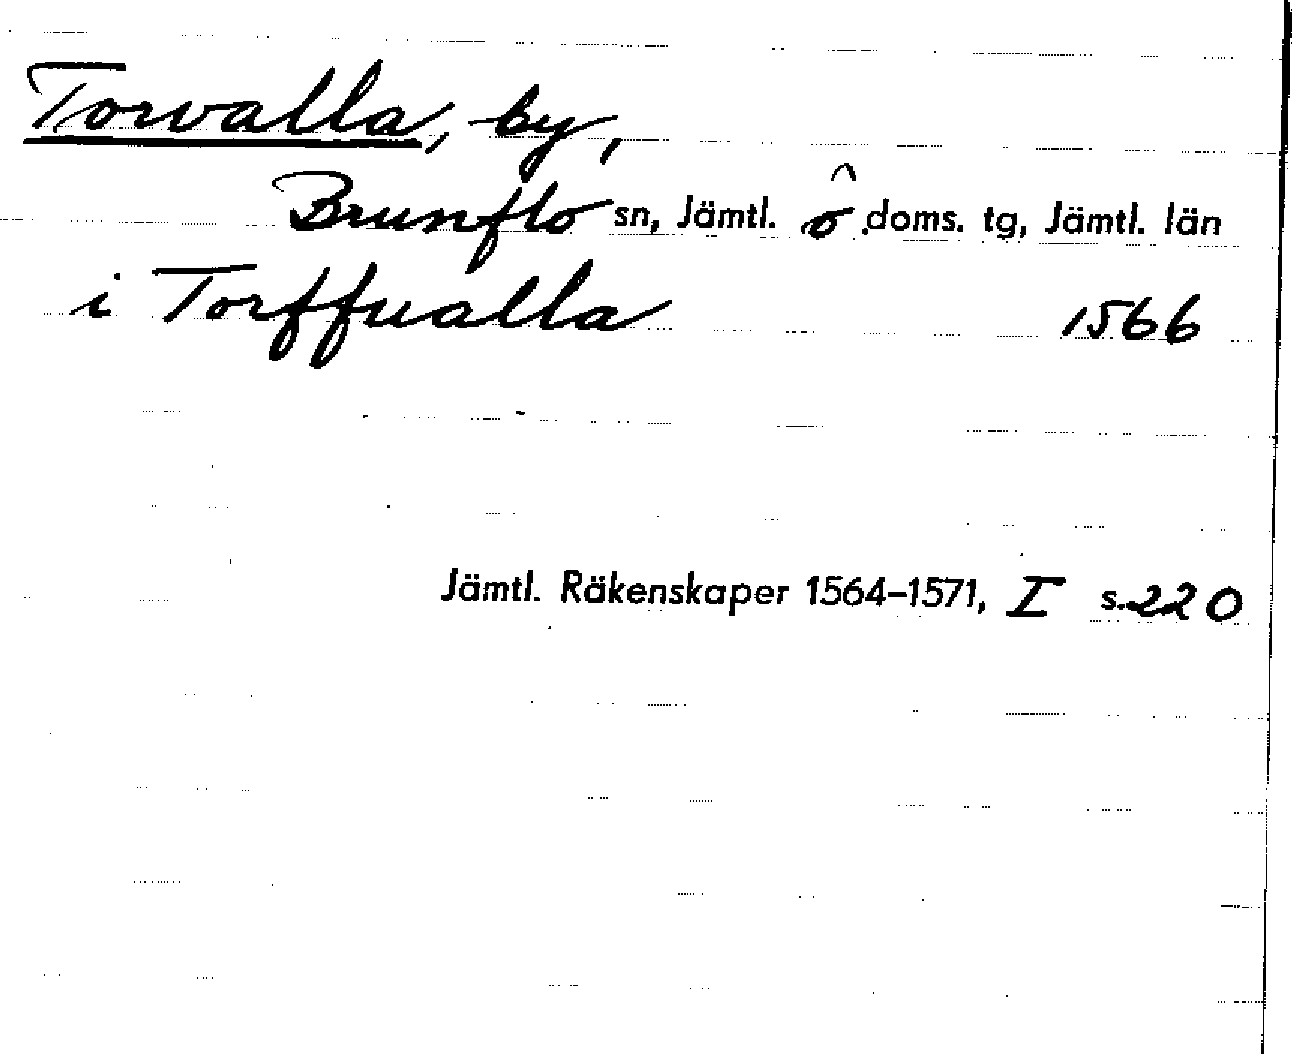 Torvalla, by,
Brunflo sn, Jämtl. ô doms. tg, Jämtl. län
i Torffualla 1566
Jämtl. Räkenskaper 1564–1571, I s. 220